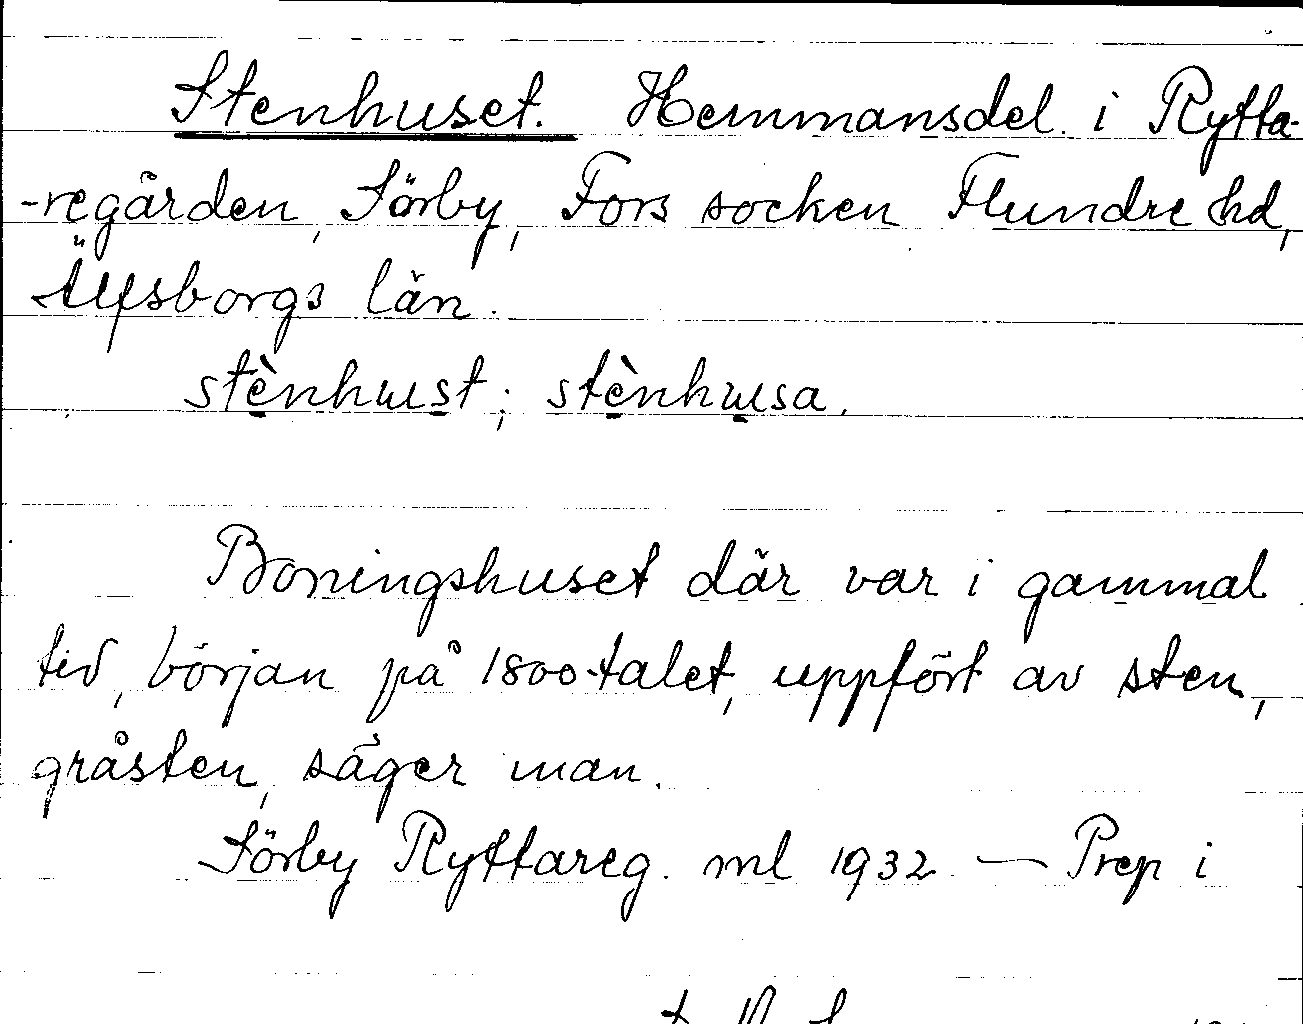 Stenhuset. Hemmansdel i Rytta-
-regården, Sörby, Fors socken Flundre hd,
Älfsborgs län.
stènhust; stènhusa.
Boningshuset där var i gammal
tid, början på 1800-talet, uppfört av sten,
gråsten, säger man.
Sörby Ryttareg. ml 1932 — Prep i